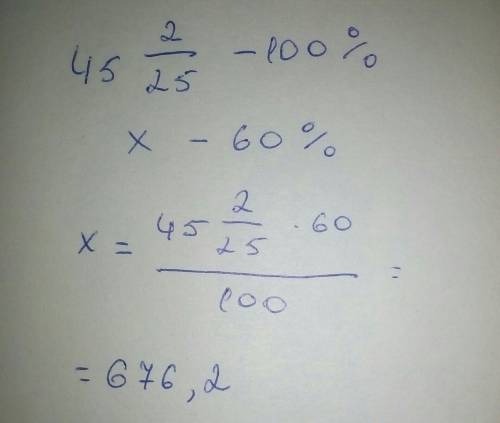 45 2/25 - 100%
x - 60%
x = (45 2/25 · 60)/100 =
= 676,2